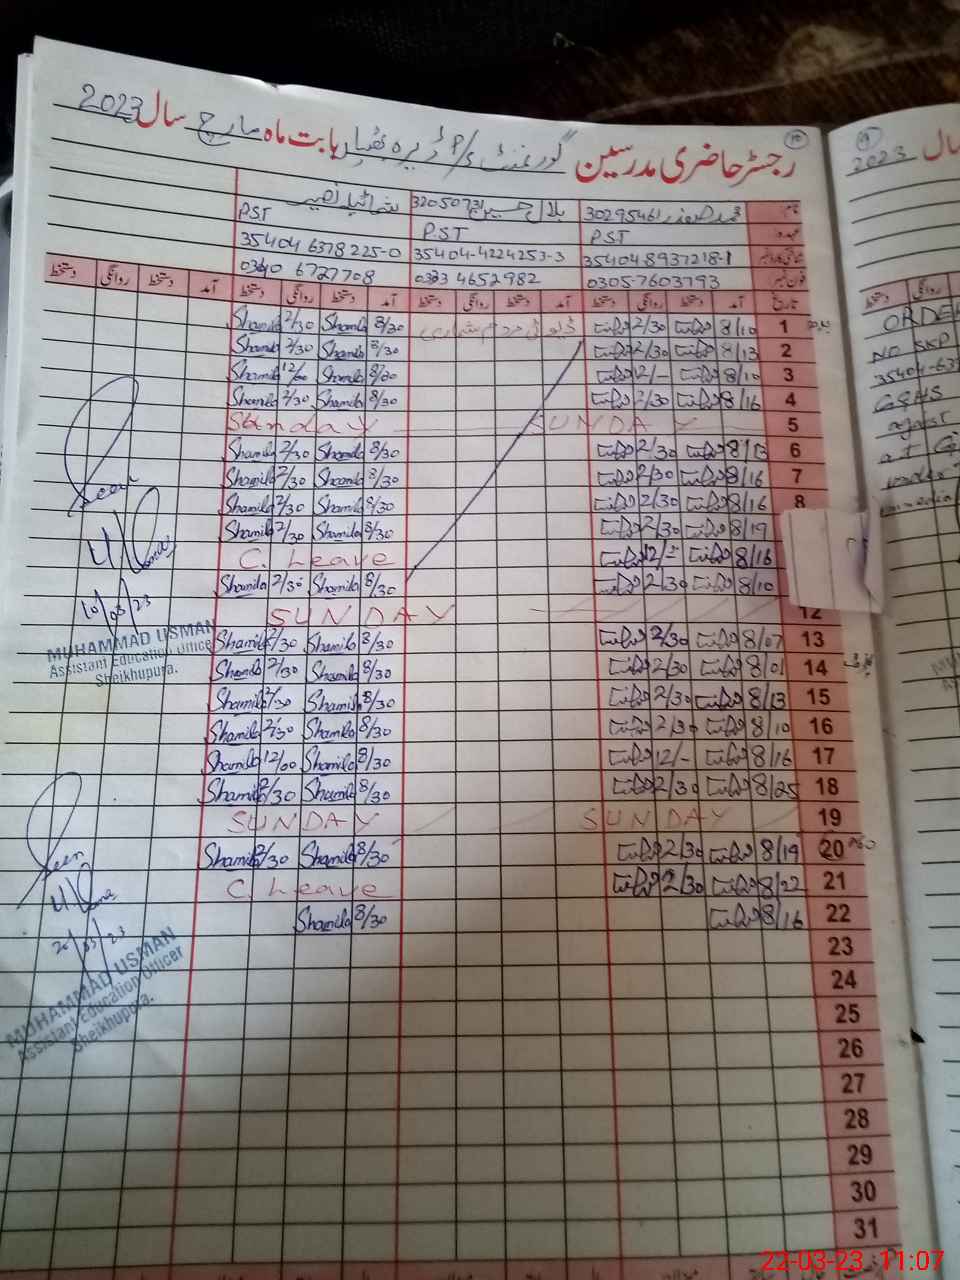 رجسٹر حاضری مدرسین گورنمنٹ P/S ڈیرہ بھٹیاں بابت ماہ مارچ سال 2023
نام 30295461 بلال حسین 32050731 شمائلہ نصیر
عہدہ PST PST PST
35404 8937218-1 35404-4224253-3 35404 6378225-0
فون نمبر 0305-7603793 0333 4652982 0340 6727708
تاریخ آمد دستخط روانگی دستخط آمد دستخط روانگی دستخط آمد دستخط روانگی دستخط آمد دستخط روانگی دستخط
1 8/10 2/30 8/30 Shamila 2/30 Shamila
2 8/13 2/30 8/30 Shamila 2/30 Shamila
3 8/10 12/- 8/30 Shamila 12/00 Shamila
4 8/16 2/30 8/30 Shamila 2/30 Shamila
5 SUNDAY Sunday
6 8/13 2/30 8/30 Shamila 2/30 Shamila
7 8/16 2/30 8/30 Shamila 2/30 Shamila
8 8/16 2/30 8/30 Shamila 2/30 Shamila
8/19 2/30 8/30 Shamila 2/30 Shamila
8/16 12/- C. Leave
8/10 2/30 8/30 Shamila 2/30 Shamila
12 SUNDAY
13 8/07 2/30 8/30 Shamila 2/30 Shamila
14 8/01 2/30 8/30 Shamila 2/30 Shamila
15 8/13 2/30 8/30 Shamila 2/30 Shamila
16 8/10 2/30 8/30 Shamila 2/30 Shamila
17 8/16 12/- 8/30 Shamila 12/00 Shamila
18 8/25 2/30 8/30 Shamila 2/30 Shamila
19 SUNDAY SUNDAY
20 8/19 2/30 8/30 Shamila 2/30 Shamila
21 8/22 2/30 C. Leave
22 8/16 8/30 Shamila
23
24
25
26
27
28
29
30
31
Seen
Usman
10/03/23
MUHAMMAD USMAN
Assistant Education Officer
Sheikhupura.
Seen
Usman
20/03/23
MUHAMMAD USMAN
Assistant Education Officer
Sheikhupura.
سال 2023
دستخط روانگی
ORDER
NO SKP
35404-63
GGHS
against
at G
under
immedia
22-03-23 11:07